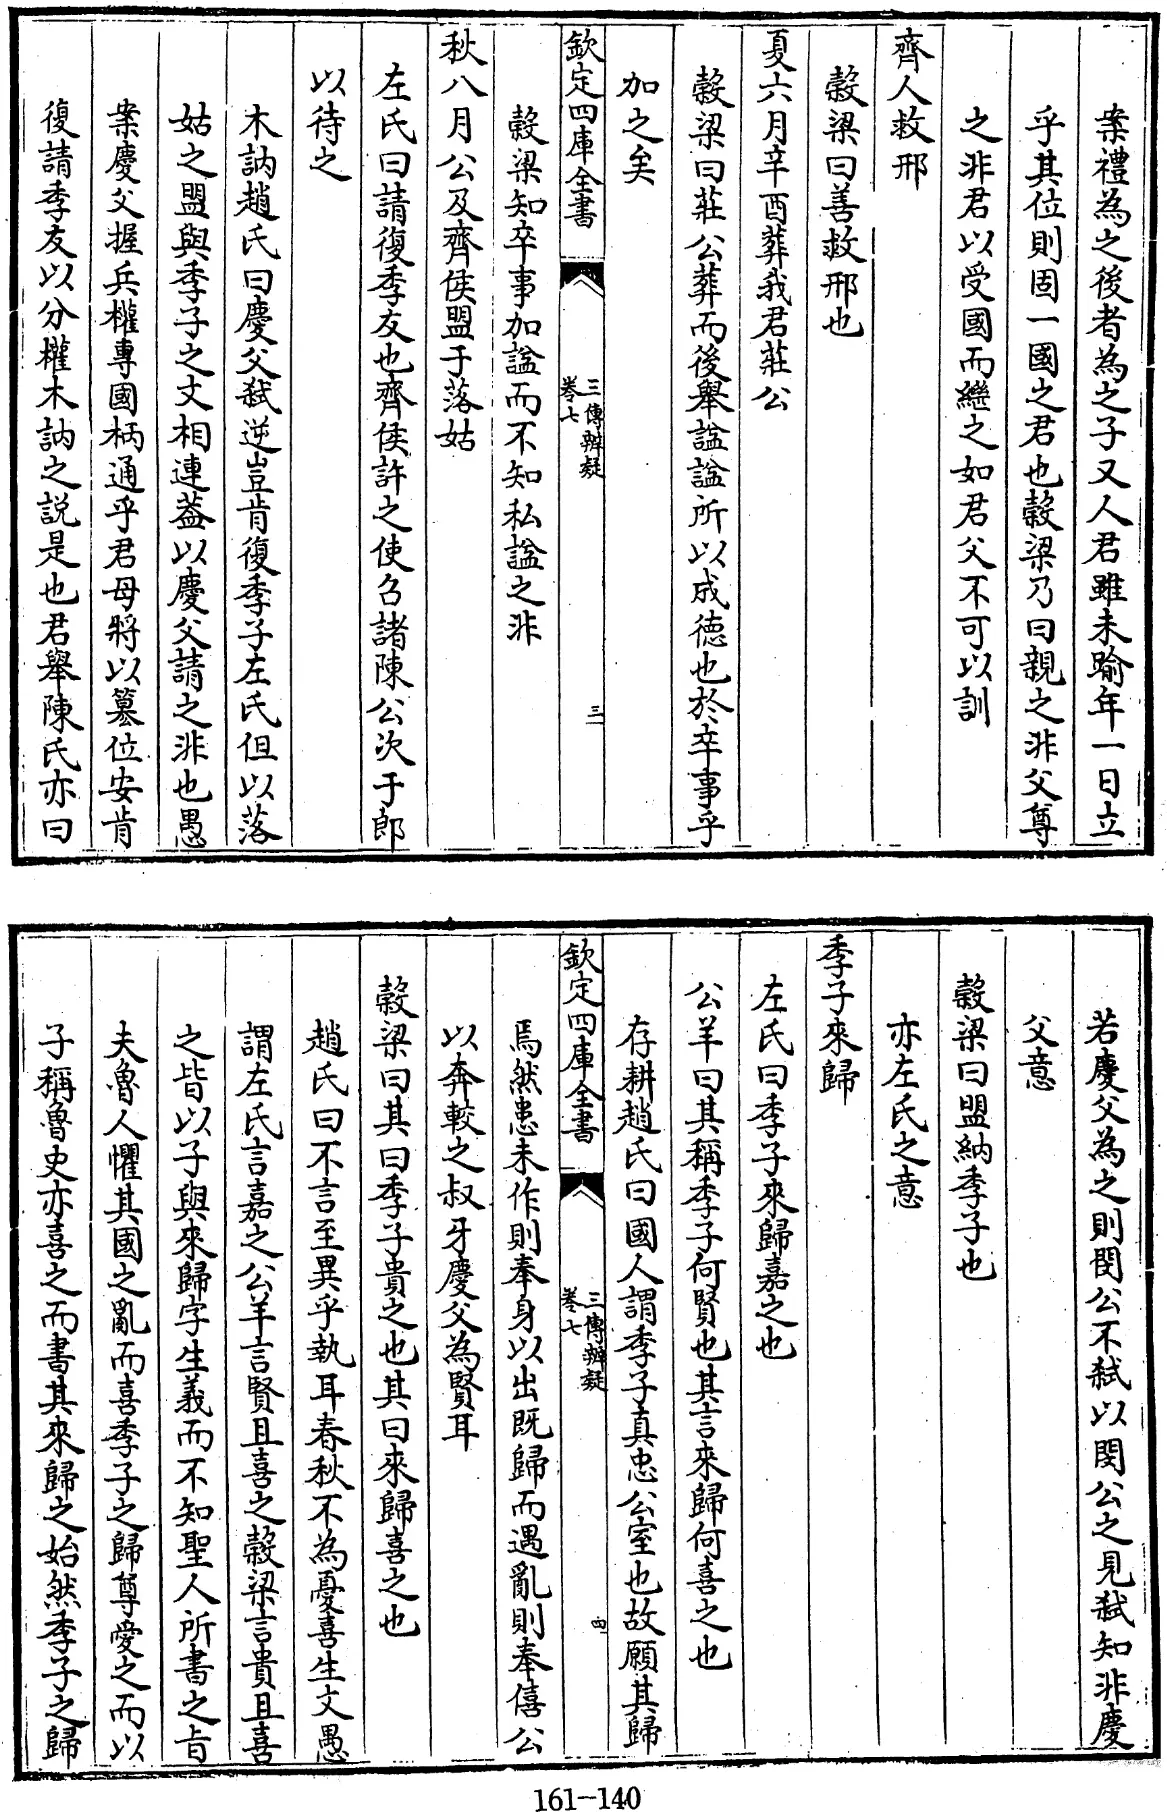 案禮為之後者為之子又人君雖未踰年一日立
乎其位則固一國之君也榖梁乃曰親之非父尊
之非君以受國而繼之如君父不可以訓
齊人救邢
榖梁曰善救邢也
夏六月辛酉葬我君莊公
榖梁曰莊公葬而後舉諡諡所以成德也於卒事乎
加之矣
欽定四庫全書
三傳辨疑
卷七
三
榖梁知卒事加諡而不知私諡之非
秋八月公及齊侯盟于落姑
左氏曰請復季友也齊侯許之使召諸陳公次于郎
以待之
木訥趙氏曰慶父弑逆豈肯復季子左氏但以落
姑之盟與季子之文相連蓋以慶父請之非也愚
案慶父握兵權專國柄通乎君母將以簒位安肯
復請季友以分權木訥之説是也君舉陳氏亦曰
若慶父為之則閔公不弑以閔公之見弑知非慶
父意
榖梁曰盟納季子也
亦左氏之意
季子來歸
左氏曰季子來歸嘉之也
公羊曰其稱季子何賢也其言來歸何喜之也
存耕趙氏曰國人謂季子真忠公室也故願其歸
欽定四庫全書
三傳辨疑
卷七
四
焉然患未作則奉身以出既歸而遇亂則奉僖公
以奔較之叔牙慶父為賢耳
榖梁曰其曰季子貴之也其曰來歸喜之也
趙氏曰不言至異乎執耳春秋不為憂喜生文愚
謂左氏言嘉之公羊言賢且喜之榖梁言貴且喜
之皆以子與來歸字生義而不知聖人所書之旨
夫魯人懼其國之亂而喜季子之歸尊愛之而以
子稱魯史亦喜之而書其來歸之始然季子之歸
161-140